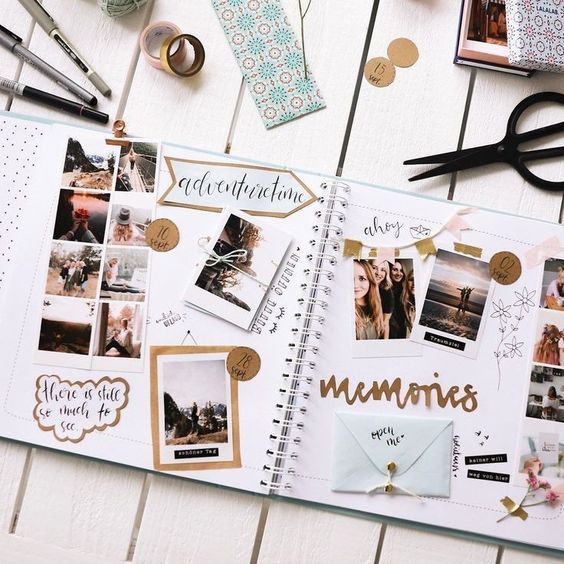 LALAL
15
sept
adventuretime
10
sept
BITTE ÖFFNEN
there is still
so much to
see
28
sept
schöner Tag
ahoy
02
sept
Traumziel
memories
open
me
keiner will
weg von hier